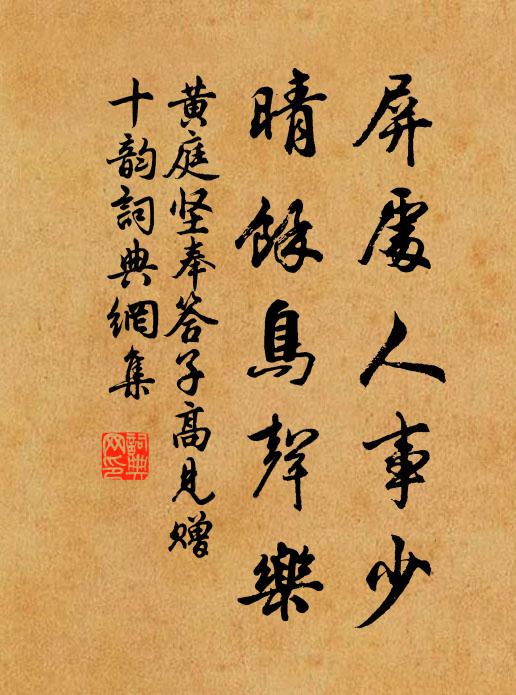 屏處人事少
晴餘鳥聲樂
黄庭坚奉答子高見贈
十韵詞典網集
詞典网印